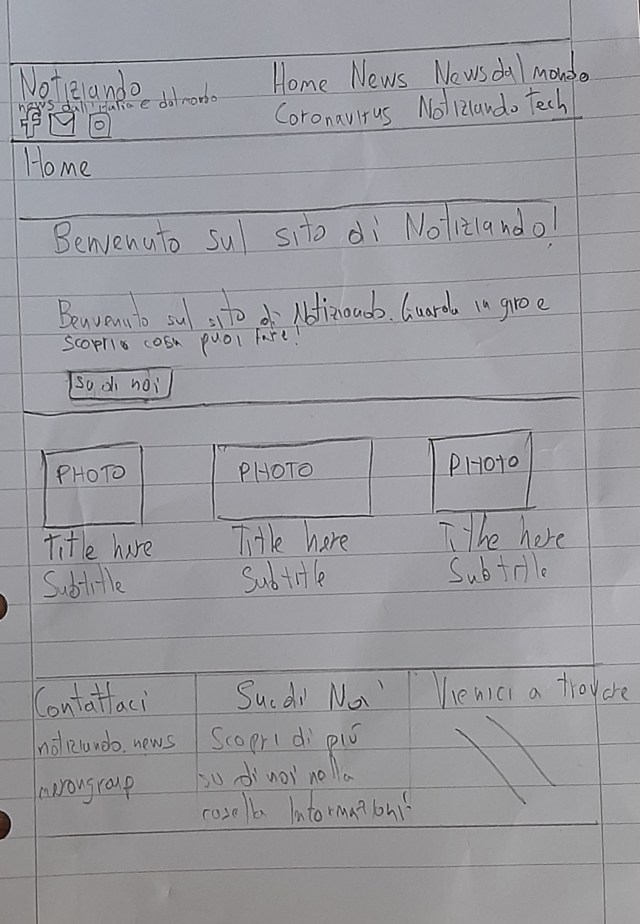 Notiziando
news dall'italia e dal mondo
Home News News dal mondo
Coronavirus Notiziando Tech
Home
Benvenuto sul sito di Notiziando!
Benvenuto sul sito di Notiziando. Guarda in giro e
scopri cosa puoi fare!
Su di noi
PHOTO PHOTO PHOTO
Title here Title here Title here
Subtitle Subtitle Subtitle
Contattaci
notiziando.news
Su di Noi
Scopri di più
su di noi nella
casella Informazioni
Vienici a trovare